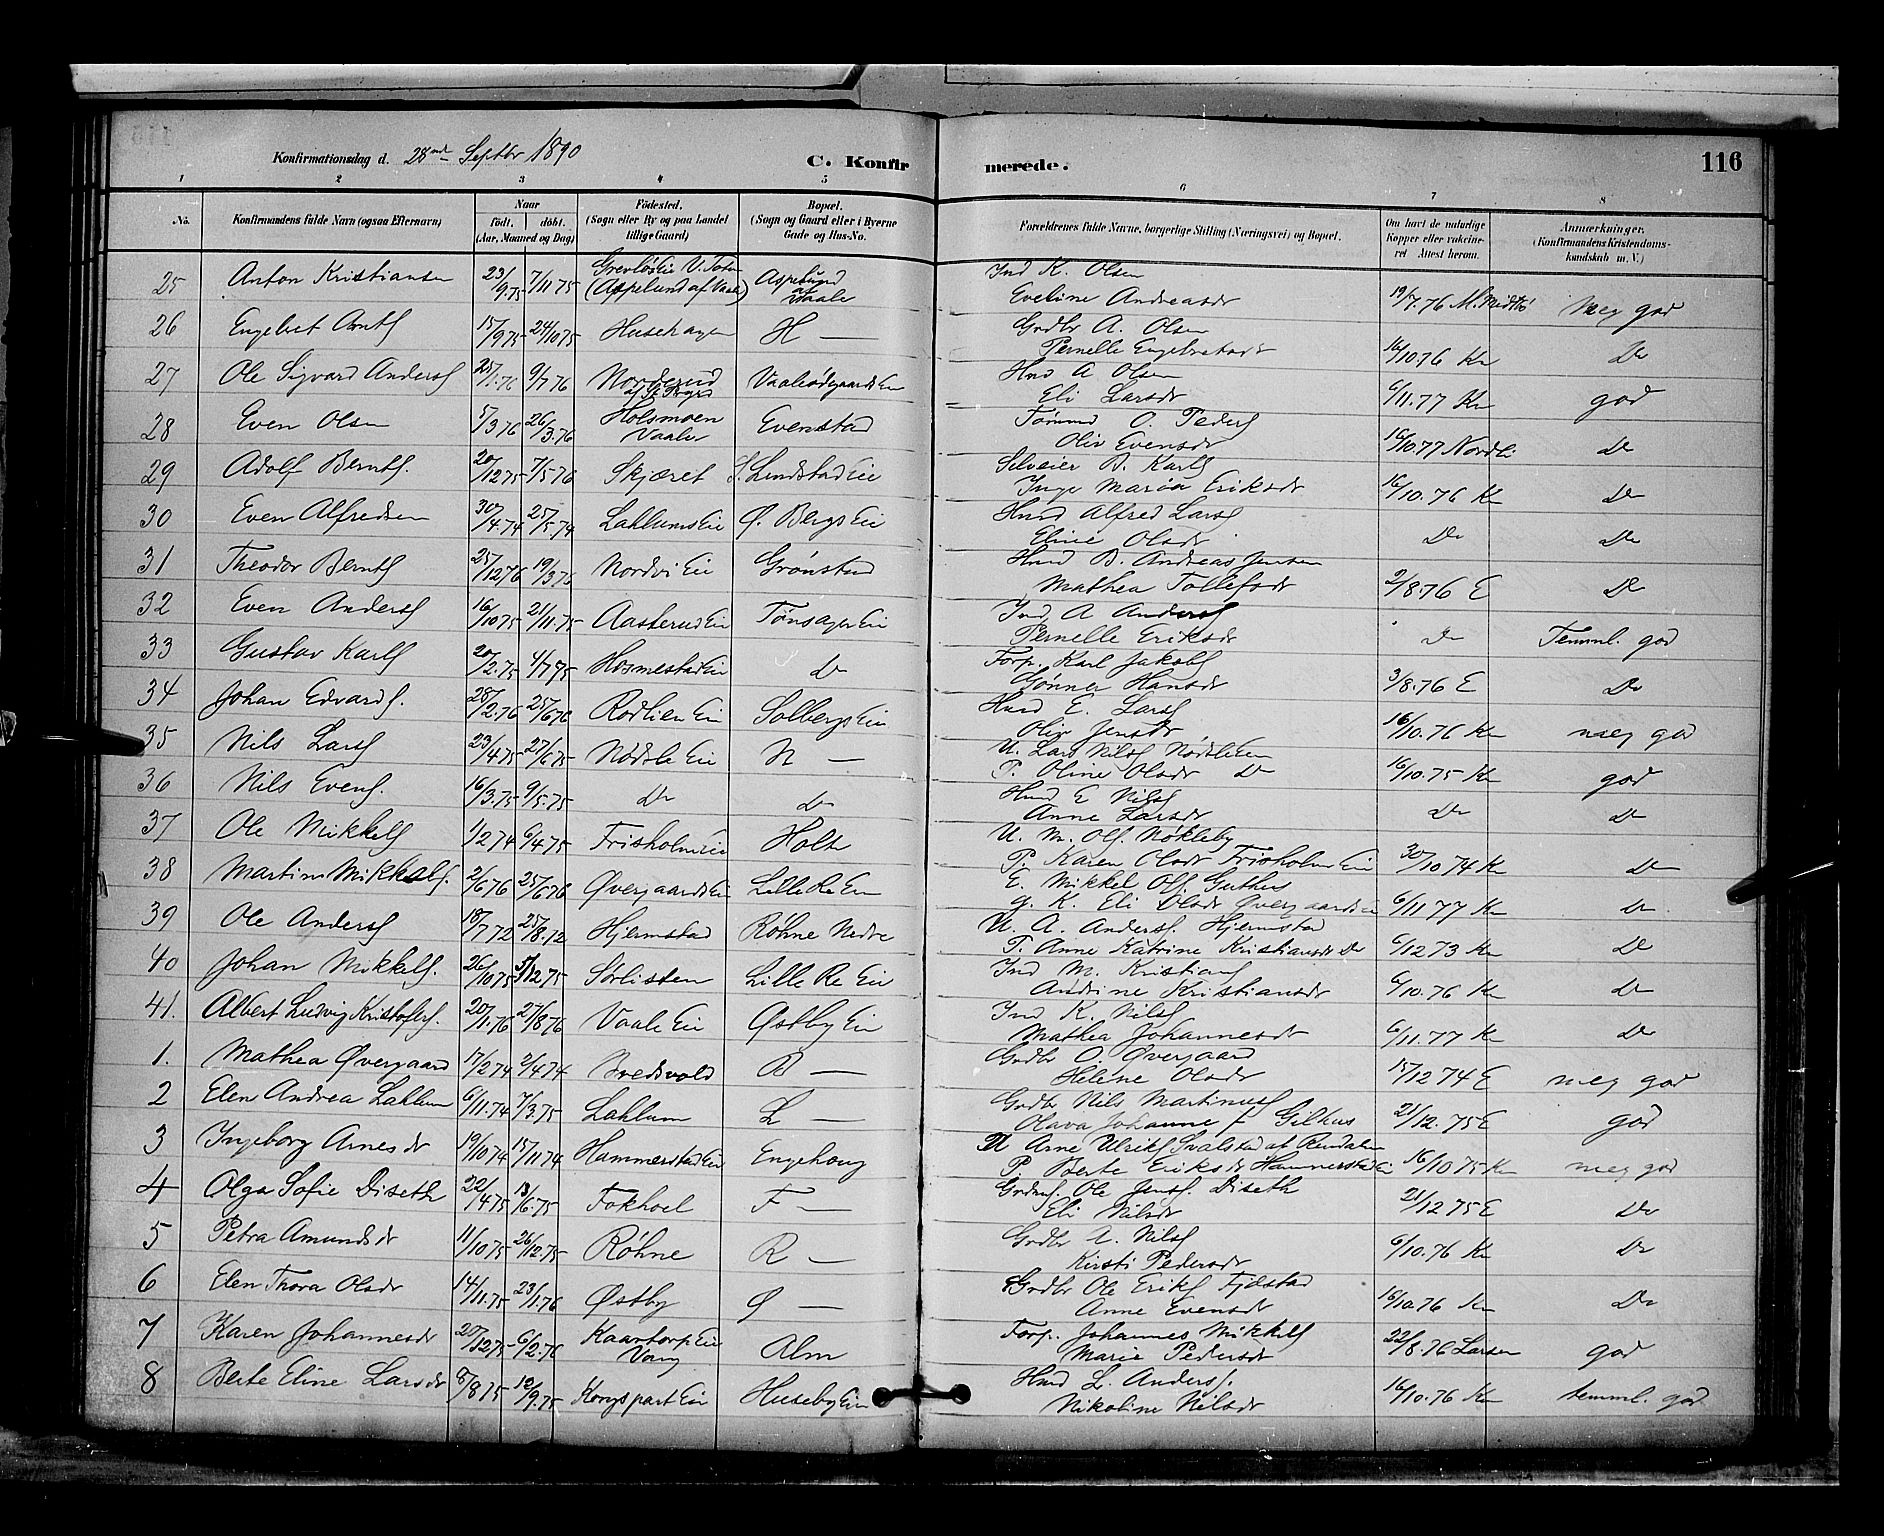 Konfirmationsdag d. 28nd Septbr 1890 C. Konfirmerede. 116
1 2 3 4 5 6 7 8
No. Konfirmandens fulde Navn (ogsaa Efternavn) Naar födt. döbt. (Aar, Maaned og Dag) Födested. (Sogn eller By og paa Landet tillige Gaard) Bopæl. (Sogn og Gaard eller i Byerne Gade og Hus-No. Forældrenes fulde Navne, borgerlige Stilling (Næringsvei) og Bopæl. Om havt de naturlige Kopper eller vakcineret Attest herom. Anmærkninger. (Konfirmandens Kristendomskundskab m. V.)
25 Anton Kristiansen 23/9.75 7/11 75 Grevlös Eie V. Toten (Aspelund af Vaale) Aspelund af Vaale Ind K. Olsen
Eveline Andreasdr 19/7.76 M. Midtbö meg god
26 Engebret Arntf 15/9 75 24/10 75 Husehagen H — Grdbr A. Olsen
Pernelle Engebretsdr 16/10.76 Kr Do
27 Ole Sigvard Andersf 25/1.76 9/7 76 Norderud Vaaleödegaards Eie Hmd A Olsen
Eli Larsdr 6/11.77 Kr god
28 Even Olsen 5/3 76 26/3.76 Holsmoen Vaaler Evenstad Tömmd O. Pedersf
Oliv Evensdr 16/10.77 Nordli Do
29 Adolf Berntf. 20/12 75 7/5 76 Skjæret S. Lundstad Eie Selveier B. Karlf
Inge Maria Eriksdr 16/10.76 Kr Do
30 Even Alfredsen 30/4.74 25/5.74 Lahlums Eie Ø. Bergs Eie Hmd Alfred Larsf
Eline Olsdr Do Do
31 Theodor Berntf 25/12 76 19/3 76 Nordvi Eie Grønstad Hmd B. Andreas Jensen
Mathea Tollefsdr 2/8.76 E Do
32 Even Andersf 16/10 75 21/11.75 Aasterud Eie Tønsager Eie Ind A Andersf
Pernelle Eriksdr Do Temml. god
33 Gustav Karlf 20/2.75 4/7 75 Hosmestad Eie Do Forp. Karl Jakobf
Gönner Hansdr 3/8.76 E Do
34 Johan Edvardf. 28/2.76 25/6 76 Rodlien Eie Solbergs Eie Hmd E. Larsf
Oliv Jensdr 16/10.76 Kr meg god
35 Nils Larsf 23/4.75 27/6.75 Nødsle Eie N — U. Lars Nilsf Nødsle Eie
P. Oline Olsdr Do 16/10.75 Kr god
36 Nils Evenf. 16/3.75 9/5.75 Do Do Hmd E Nilsf
Anne Larsdr Do Do
37 Ole Mikkelf 1/2 74 6/4 75 Frisholm Eie Holte U. M. Olf. Nökleby
P. Karen Olsdr Frisholm Eie 30/10 74 Kr Do
38 Martin Mikkelf. 2/6 76 25/6 76 Øvergaards Eie Lille Re Eie E. Mikkel Olf. Guthus
g. K. Eli Olsdr Øvergaards Eie 6/11 77 Kr Do
39 Ole Andersf 18/7 72 25/8.72 Hjermstad Röhne Nedre U. A. Andersf. Hjermstad
P. Anne Katrine Kristiansdr Do 6/12 73 Kr Do
40 Johan Mikkelf. 26/10 75 5/12.75 Sörlisten Lille Re Eie Ind M. Kristianf
Andrine Kristiansdr 6/10.76 Kr Do
41. Albert Ludvig Kristoferf. 20/1.76 27/8 76 Vaale Eie Østby Eie Ind K. Nilsf
Mathea Johannesdr 6/11.77 Kr Do
1. Mathea Øvergaard 17/2 74 6/4 74 Bredvold B — Grdbr O. Øvergaard
Helene Olsdr 15/12 74 E meg god
2 Elen Andrea Lahlum 6/11.74 7/3.75 Lahlum L — Grdbr Nils Martinusf
Olava Johanne f Gilhus 21/12.75 E god
3 Ingeborg Arnesdr 19/10 74 15/11 74 Hammerstad Eie Engehaug U Arne Ulrikf Svalstad af Rendalen
P. Berte Eriksdr Hammerstad Ei 16/10 75 Kr meg god
4 Olga Sofie Diseth 22/4 75 13/6.75 Fokhoel F — Grdmf. Ole Jensf. Diseth
Eli Nilsdr 21/12 75 E Do
5 Petra Amundsdr 11/10.75 26/12.75 Røhne R — Grdbr A. Nilsf
Kirsti Pedersdr 6/10.76 Kr Do
6 Elen Thora Olsdr 14/11.75 23/1.76 Østby Ø — Grdbr Ole Erikf Fjelstad
Anne Evensdr 16/10 76 Kr Do
7 Karen Johannesdr 20/12 75 6/2.76 Kaartorp Eie Vang Alm Forp. Johannes Mikkelf
Marie Pedersdr 22/8.76 Larsen god
8 Berte Eline Larsdr 8/8 75 12/9.75 Kongspart Eie Huseby Eie Hmd L. Andersf.
Nikoline Nilsdr 16/10.76 Kr temml. god